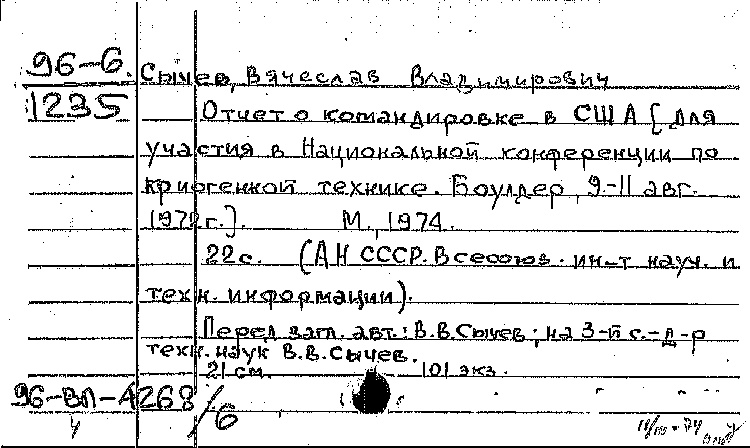 96-6. Сычев, Вячеслав Владимирович
1235 Отчет о командировке в США [для
участия в Национальной конференции по
криогенной технике. Боулдер, 9-11 авг.
1972г.]. М., 1974.
22с. (АН СССР. Всесоюз. ин-т науч. и
техн. информации).
Перед загл. авт.: В.В. Сычев; на 3-й с.-д-р
техн. наук В.В. Сычев.
21 см. 101 экз.
96-ВЛ-4268/6